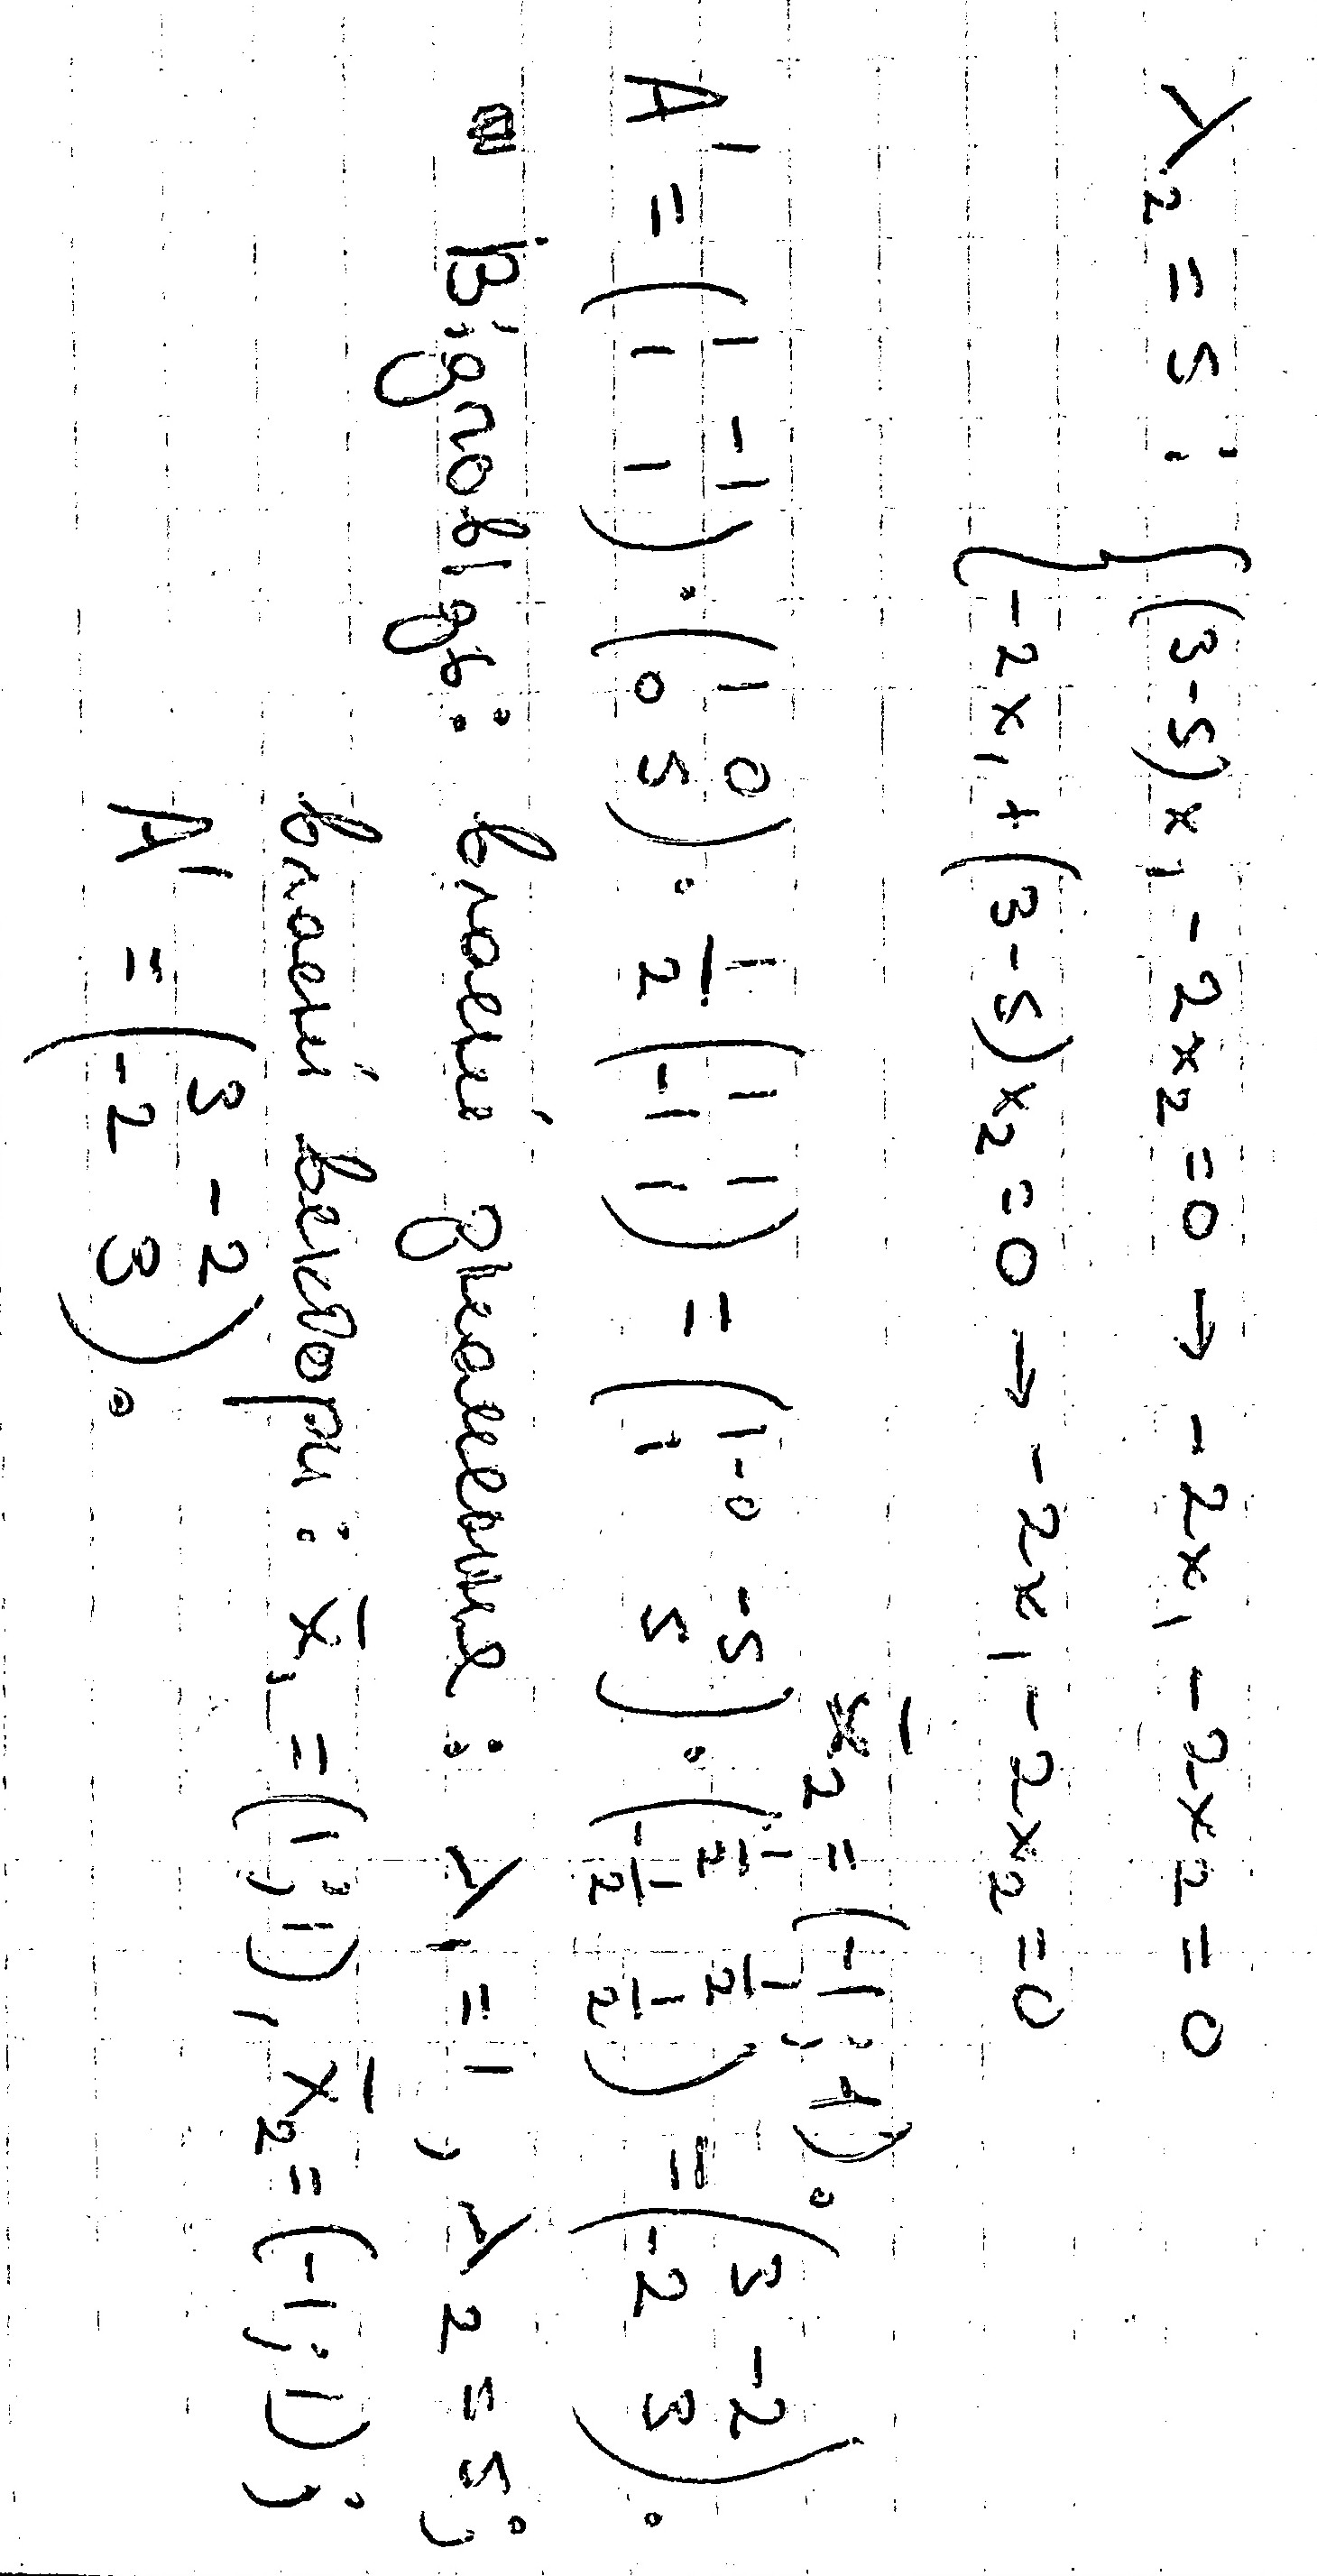 λ₂ = 5 : { (3-5)x₁ - 2x₂ = 0 → -2x₁ - 2x₂ = 0
-2x₁ + (3-5)x₂ = 0 → -2x₁ - 2x₂ = 0
x̄₂ = (-1; 1).
A' = (1 -1; 1 1) · (1 0; 0 5) · 1/2 (1 1; -1 1) = (1-0 -5; 1 5) · (1/2 1/2; -1/2 1/2) = (3 -2; -2 3).
Відповідь: власні значення: λ₁ = 1, λ₂ = 5;
власні вектори: x̄₁ = (1; 1), x̄₂ = (-1; 1);
A' = (3 -2; -2 3).